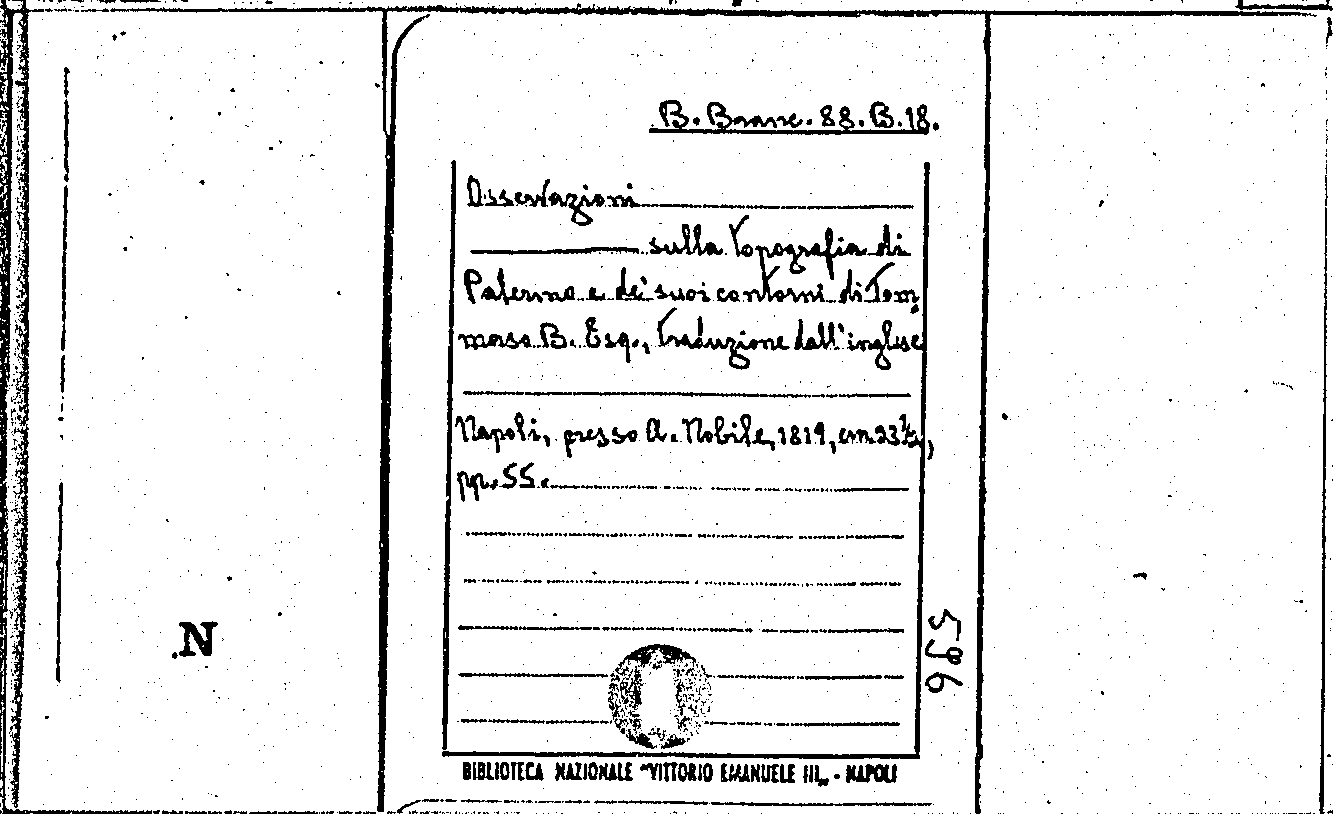 B. Branc. 88. B. 18.
Osservazioni
sulla topografia di
Palermo e de' suoi contorni di Tom-
maso B. Esq., traduzione dall'inglese
Napoli, presso A. Nobile, 1819, cm. 23½,
pp. 55.
596
N
BIBLIOTECA NAZIONALE "VITTORIO EMANUELE III„ - NAPOLI